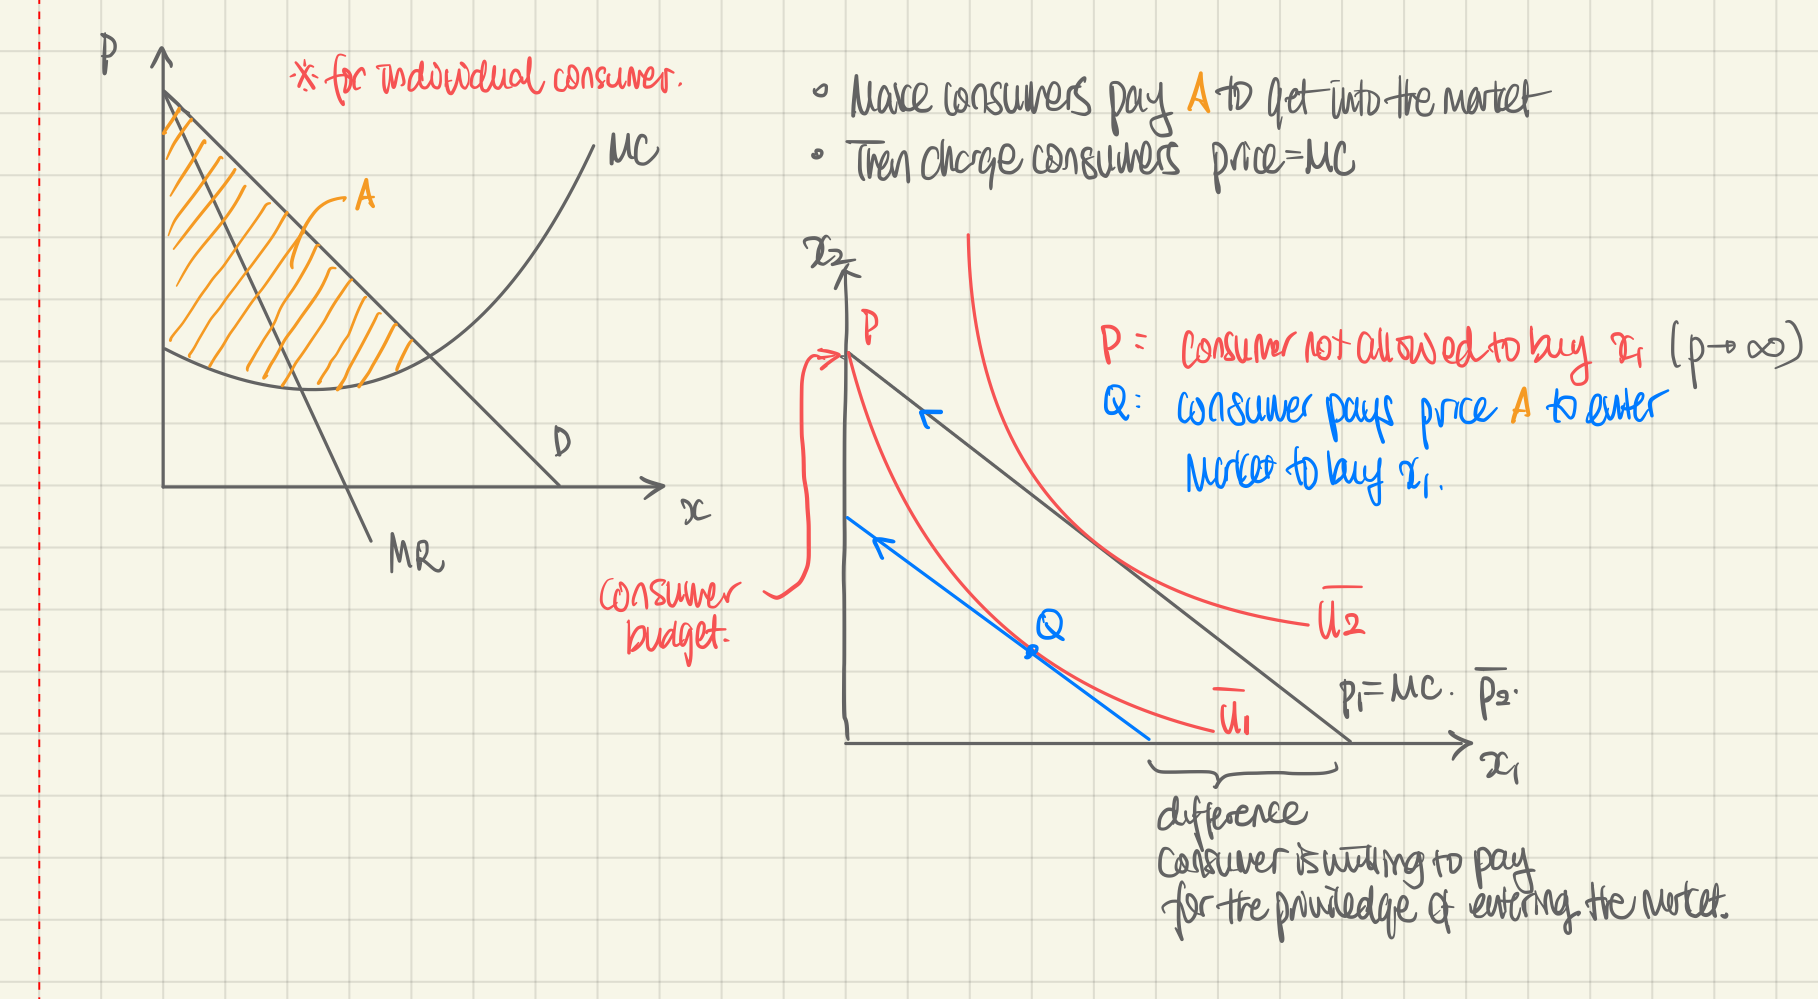 P
※ for individual consumer.
MC
A
D
x
MR
• Make consumers pay A to get into the market
• Then charge consumers price=MC
x₂
P
P = consumer not allowed to buy x₁ (p→∞)
Q: consumer pays price A to enter
market to buy x₁.
consumer
budget.
Q
u̅₂
u̅₁
p₁=MC. p̅₂.
x₁
difference
consumer is willing to pay
for the priviledge of entering the market.